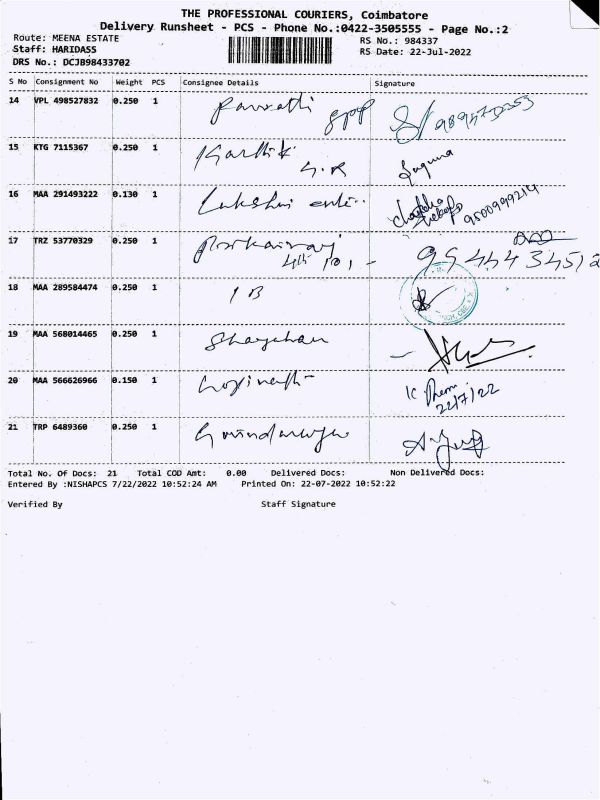 THE PROFESSIONAL COURIERS, Coimbatore
Delivery Runsheet - PCS - Phone No.:0422-3505555 - Page No.:2
Route: MEENA ESTATE
Staff: HARIDASS
DRS No.: DCJB98433702
RS No.: 984337
RS Date: 22-Jul-2022
S No Consignment No Weight PCS Consignee Details Signature
14 VPL 498527832 0.250 1
15 KTG 7115367 0.250 1 Karthik Suguna
S.R
16 MAA 291493222 0.130 1 Lakshmi 9500999214
17 TRZ 53770329 0.250 1
18 MAA 289584474 0.250 1 1 B
19 MAA 568014465 0.250 1
20 MAA 566626966 0.150 1 Gopinath
22/7/22
21 TRP 6489360 0.250 1 Govindaraju
Total No. Of Docs: 21 Total COD Amt: 0.00 Delivered Docs: Non Delivered Docs:
Entered By :NISHAPCS 7/22/2022 10:52:24 AM Printed On: 22-07-2022 10:52:22
Verified By Staff Signature